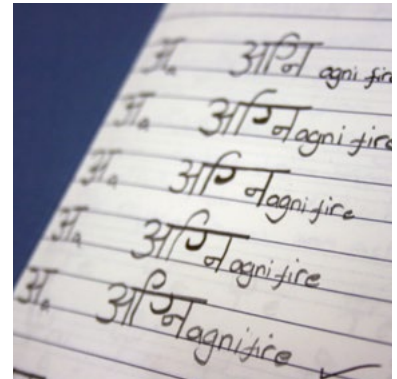 अ a अग्नि agni fire
अ a अग्नि agni fire
अ a अग्नि agni fire
अ a अग्नि agni fire
अ a अग्नि agni fire